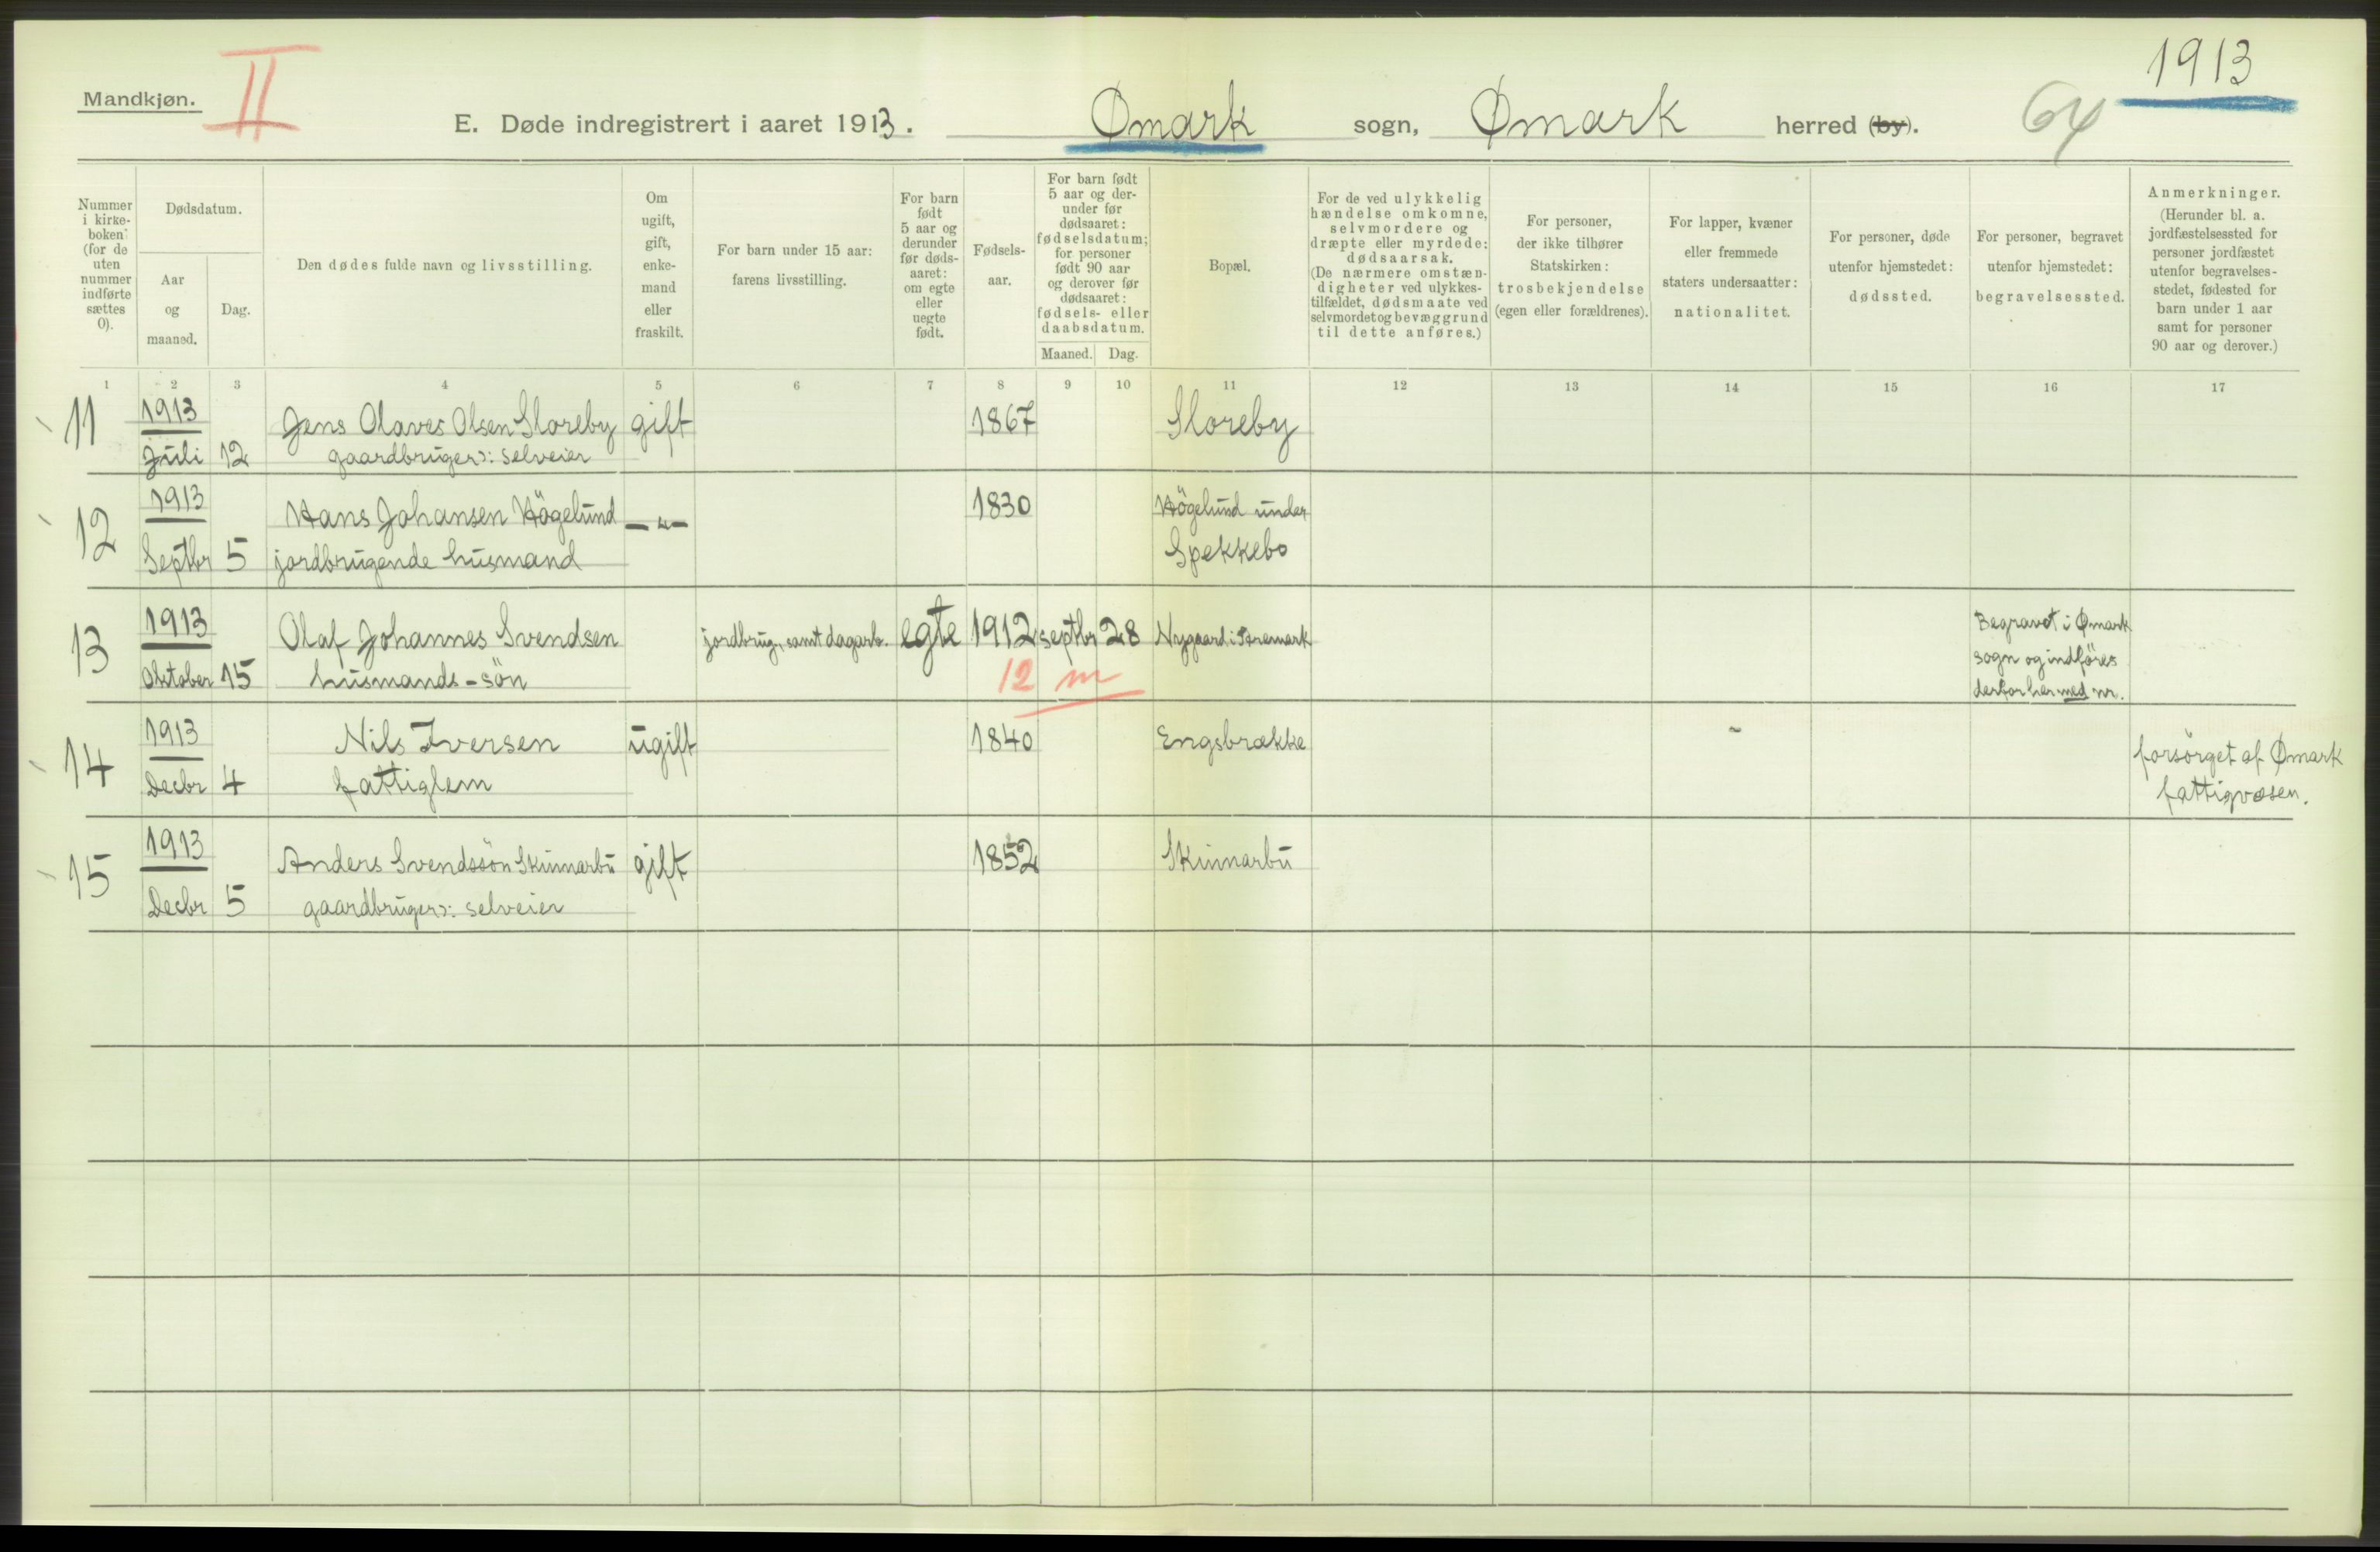 1913
Mandkjøn.
II
E. Døde indregistrert i aaret 1913. Ømark sogn, Ømark herred (by).
64
Nummer
i kirke-
boken:
(for de
uten
nummer
indførte
sættes
0).
Dødsdatum.
Aar
og
maaned.
Dag.
Den dødes fulde navn og livsstilling.
Om
ugift,
gift,
enke-
mand
eller
fraskilt.
For barn under 15 aar:
farens livsstilling.
For barn
født
5 aar og
derunder
før døds-
aaret:
om egte
eller
uegte
født.
Fødsels-
aar.
For barn født
5 aar og der-
under før
dødsaaret:
fødselsdatum;
for personer
født 90 aar
og derover før
dødsaaret:
fødsels- eller
daabsdatum.
Maaned. Dag.
Bopæl.
For de ved ulykkelig
hændelse omkomne,
selvmordere og
dræpte eller myrdede:
dødsaarsak.
(De nærmere omstæn-
digheter ved ulykkes-
tilfældet, dødsmaate ved
selvmordet og bevæggrund
til dette anføres.)
For personer,
der ikke tilhører
Statskirken:
trosbekjendelse
(egen eller forældrenes).
For lapper, kvæner
eller fremmede
staters undersaatter:
nationalitet.
For personer, døde
utenfor hjemstedet:
dødssted.
For personer, begravet
utenfor hjemstedet:
begravelsessted.
Anmerkninger.
(Herunder bl. a.
jordfæstelsessted for
personer jordfæstet
utenfor begravelses-
stedet, fødested for
barn under 1 aar
samt for personer
90 aar og derover.)
1 2 3 4 5 6 7 8 9 10 11 12 13 14 15 16 17
11 1913 Jens Olaves Olsen Sloreby gift 1867 Sloreby
Juli 12 gaardbruger ɔ: selveier
12 1913 Hans Johansen Högelund —"— 1830 Högelund under
Septbr 5 jordbrugende husmand Spekkebo
13 1913 Olaf Johannes Svendsen jordbrug. samt dagarb. egte 1912 septbr 28 Nygaard i Aremark Begravet i Ømark
sogn og indföres
derfor her med nr.
Oktober 15 husmands-sön 12 m
14 1913 Nils Iversen ugift 1840 Engsbrække forsörget af Ømark
Decbr 4 fattiglem fattigvæsen.
15 1913 Anders Svendssön Skinnarbu gift 1852 Skinnarbu
Decbr 5 gaardbruger ɔ: selveier